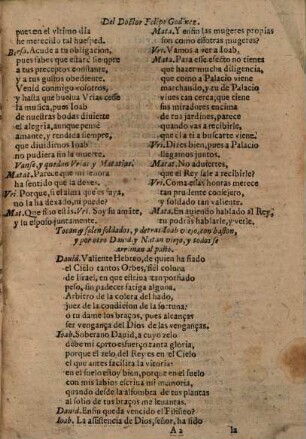 Del Doctor Felipe Godinez.
pues en el vltimo dia
he merecido tal huesped.
Bersa. Acudo a tu obligacion,
pues sabes que estarè siempre
a tus preceptos constante,
y a tus gustos obediente.
Venid conmigo vosotros,
y hasta que buelua Vrias cesse
la musica, pues Ioab
de nuestras bodas diuierte
el alegria, aunque pensè
amante, y rendida siempre,
que diuidirnos Ioab
no pudiera sin la muerte.
Vanse, y quedan Vrias y Matatias.
Matat. Parece que mi señora
ha sentido que la dexes.
Vri. Porque, si el alma que es suya,
no la ha dexado, ni puede?
Mat. Que fino estàs. Vri. Soy su amãte,
y su esposo juntamente.
Mata. Y en fin las mugeres propias
son como essotras mugeres?
Vri. Vamos a ver a Ioab,
Mata. Para esse efecto no tienes
que hazer mucha diligencia,
que como a Palacio viene
marchando, y en de Palacio
viues tan cerca, que tiene
sus miradores encima
de tus jardines, parece
quando vas a recibirle,
que èl a ti a buscarte viene.
Vri. Dizes bien, pues a Palacio
llegamos juntos.
Matat. No aduiertes,
que el Rey sale a recibirle?
Vri. Como essas honras merece
tan prudente consejero,
y soldado tan valiente.
Mata. En auiendo hablado al Rey,
tu podràs hablarle, y verle.
Tocan, y salen soldados, y detras Ioab viejo, con baston,
y por otro Dauid, y Natan viejo, y todos se
arriman al paño.
Dauid. Valiente Hebreo, de quien ha fiado
el Cielo tantos Orbes, fiel coluna
de Israel, en que estriua tan porfiado
peso, sin padecer fatiga alguna.
Arbitro de la colera del hado,
juez de la condicion de la fortuna:
o tu dame los braços, pues alcanças
ser vengança del Dios de las venganças.
Ioab. Soberano Dauid, a cuyo zelo
debe mi corto esfuerço tanta gloria,
porque el zelo del Rey es en el Cielo
el que antes facilita la vitoria:
en el suelo estoy bien, porque en el suelo
con mis labios escriua mi memoria,
quando desde la alfombra de tus plantas
al solio de tus braços me leuantas.
Dauid. Enfin queda vencido el Filisteo?
Ioab. La assistencia de Dios, señor, ha sido
A 2 la